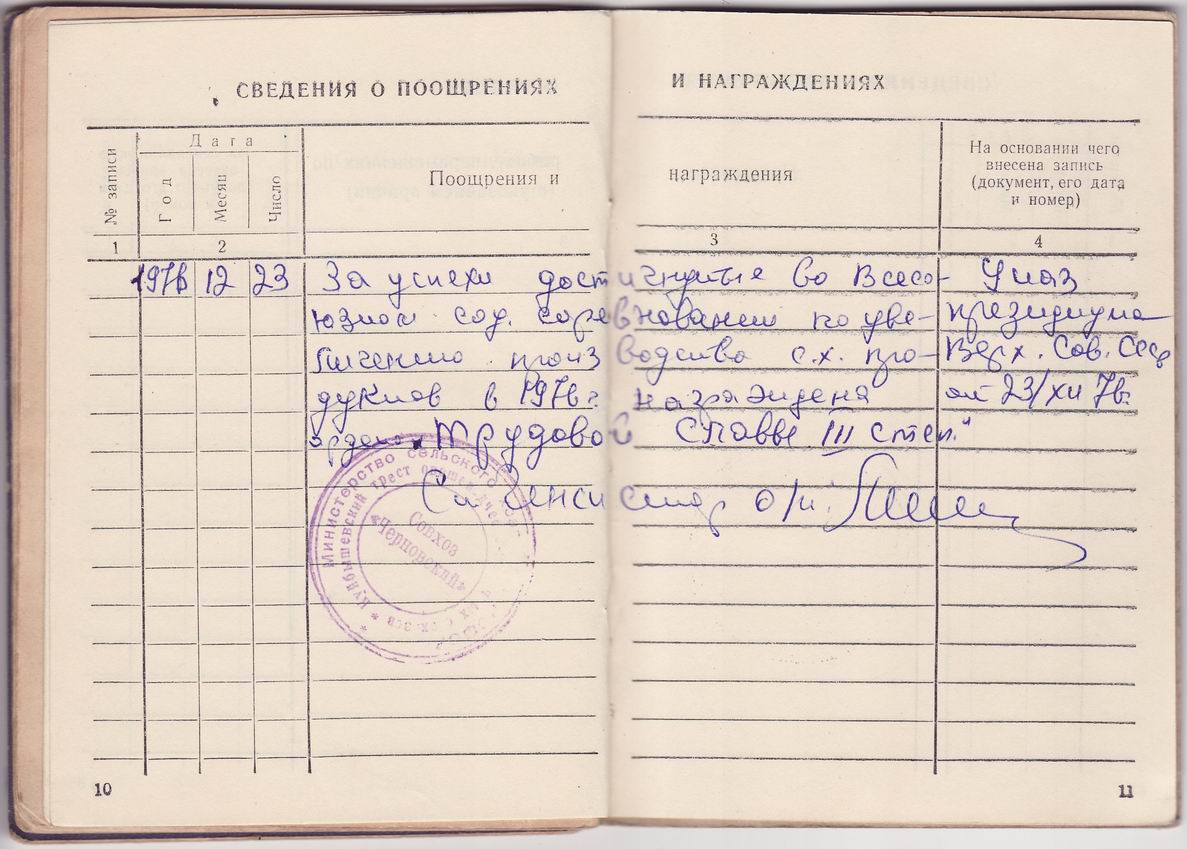 СВЕДЕНИЯ О ПООЩРЕНИЯХ И НАГРАЖДЕНИЯХ
№ записи
Дата
Год
Месяц
Число
Поощрения и награждения
На основании чего
внесена запись
(документ, его дата
и номер)
1 2 3 4
1976 12 23 За успехи достигнутые во Всесо- Указ
юзном соц. соревновании по уве- президиума
личению производства с.х. про- Верх. Сов. СССР
дуктов в 1976 г. награждена от 23/XII 76г.
орденом „Трудовой Славы III степ."
Ст. инспектор о/к
Министерство сельского
Куйбышевский трест
Совхоз
«Черновский»
10
11